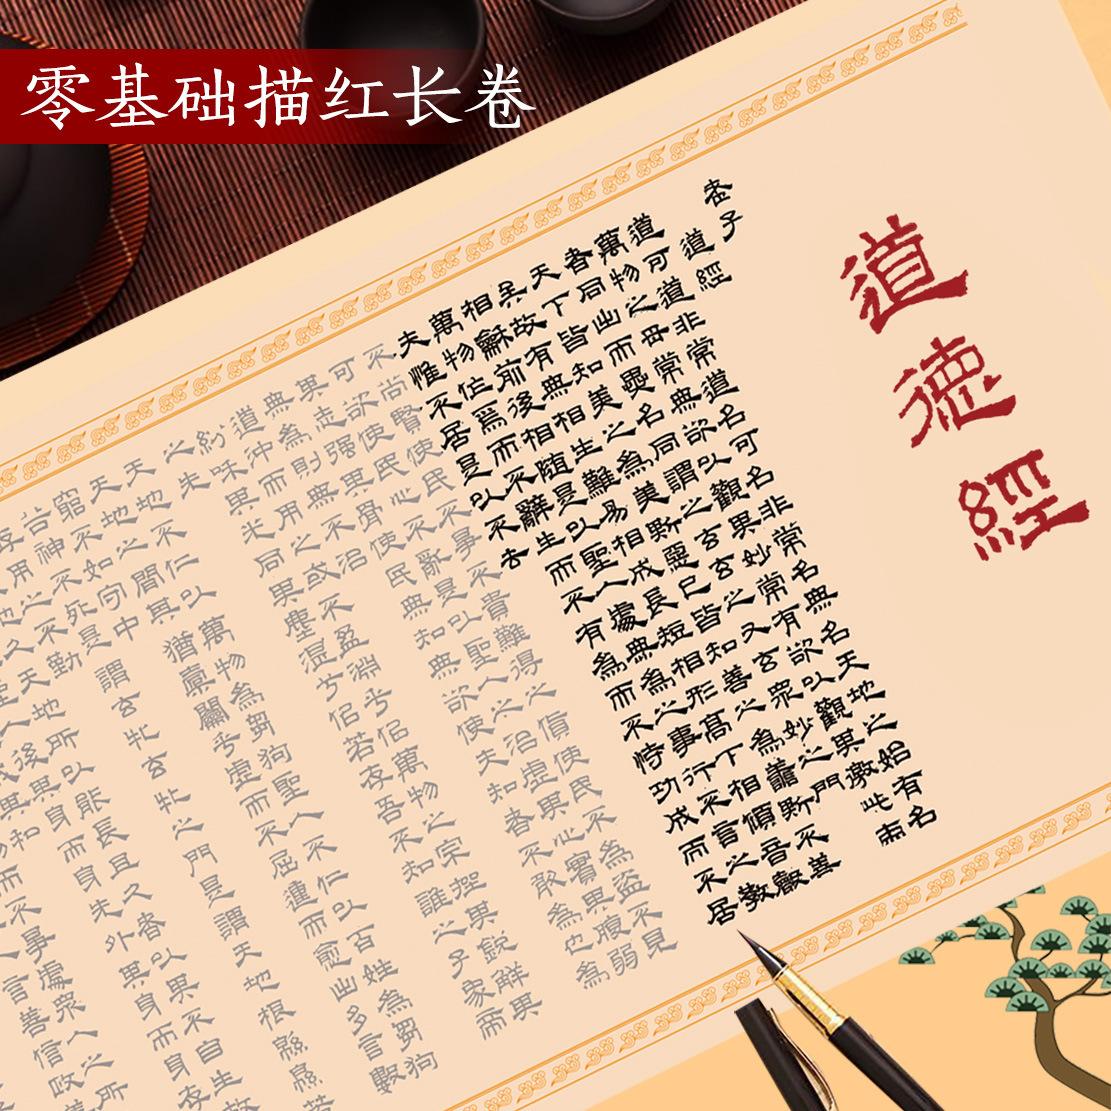 零基础描红长卷
道德經
老子
道經
道可道非常道名可名非常名無名天地之始有名
萬物之母常無欲以觀其妙常有欲以觀其徼此兩
者同出而異名同謂之玄玄之又玄眾妙之門
天下皆知美之為美斯惡已皆知善之為善斯不善
矣故有無相生難易相成長短相形高下相傾音聲
相龢前後相随是以聖人處無為之事行不言之教
萬物作焉而不辭生而不有為而不恃功成而不居
夫惟不居是以不去
不尚賢使民不爭不貴難得之貨使民不為盜不見
可欲使民心不亂是以聖人之治虛其心實其腹弱
其志强其骨使民無知無欲使夫知者不敢為也為
無為則無不治
道沖而用之或不盈淵兮佀萬物之宗挫其銳解其
紛和其光同其塵湛兮佀若存吾不知誰之子象而
之先
天地不仁以萬物為芻狗聖人不仁以百姓為芻狗
天地之間其猶橐籥乎虛而不屈動而愈出多言數
窮不如守中
谷神不死是謂玄牝玄牝之門是謂天地根緜緜若
存用之不勤